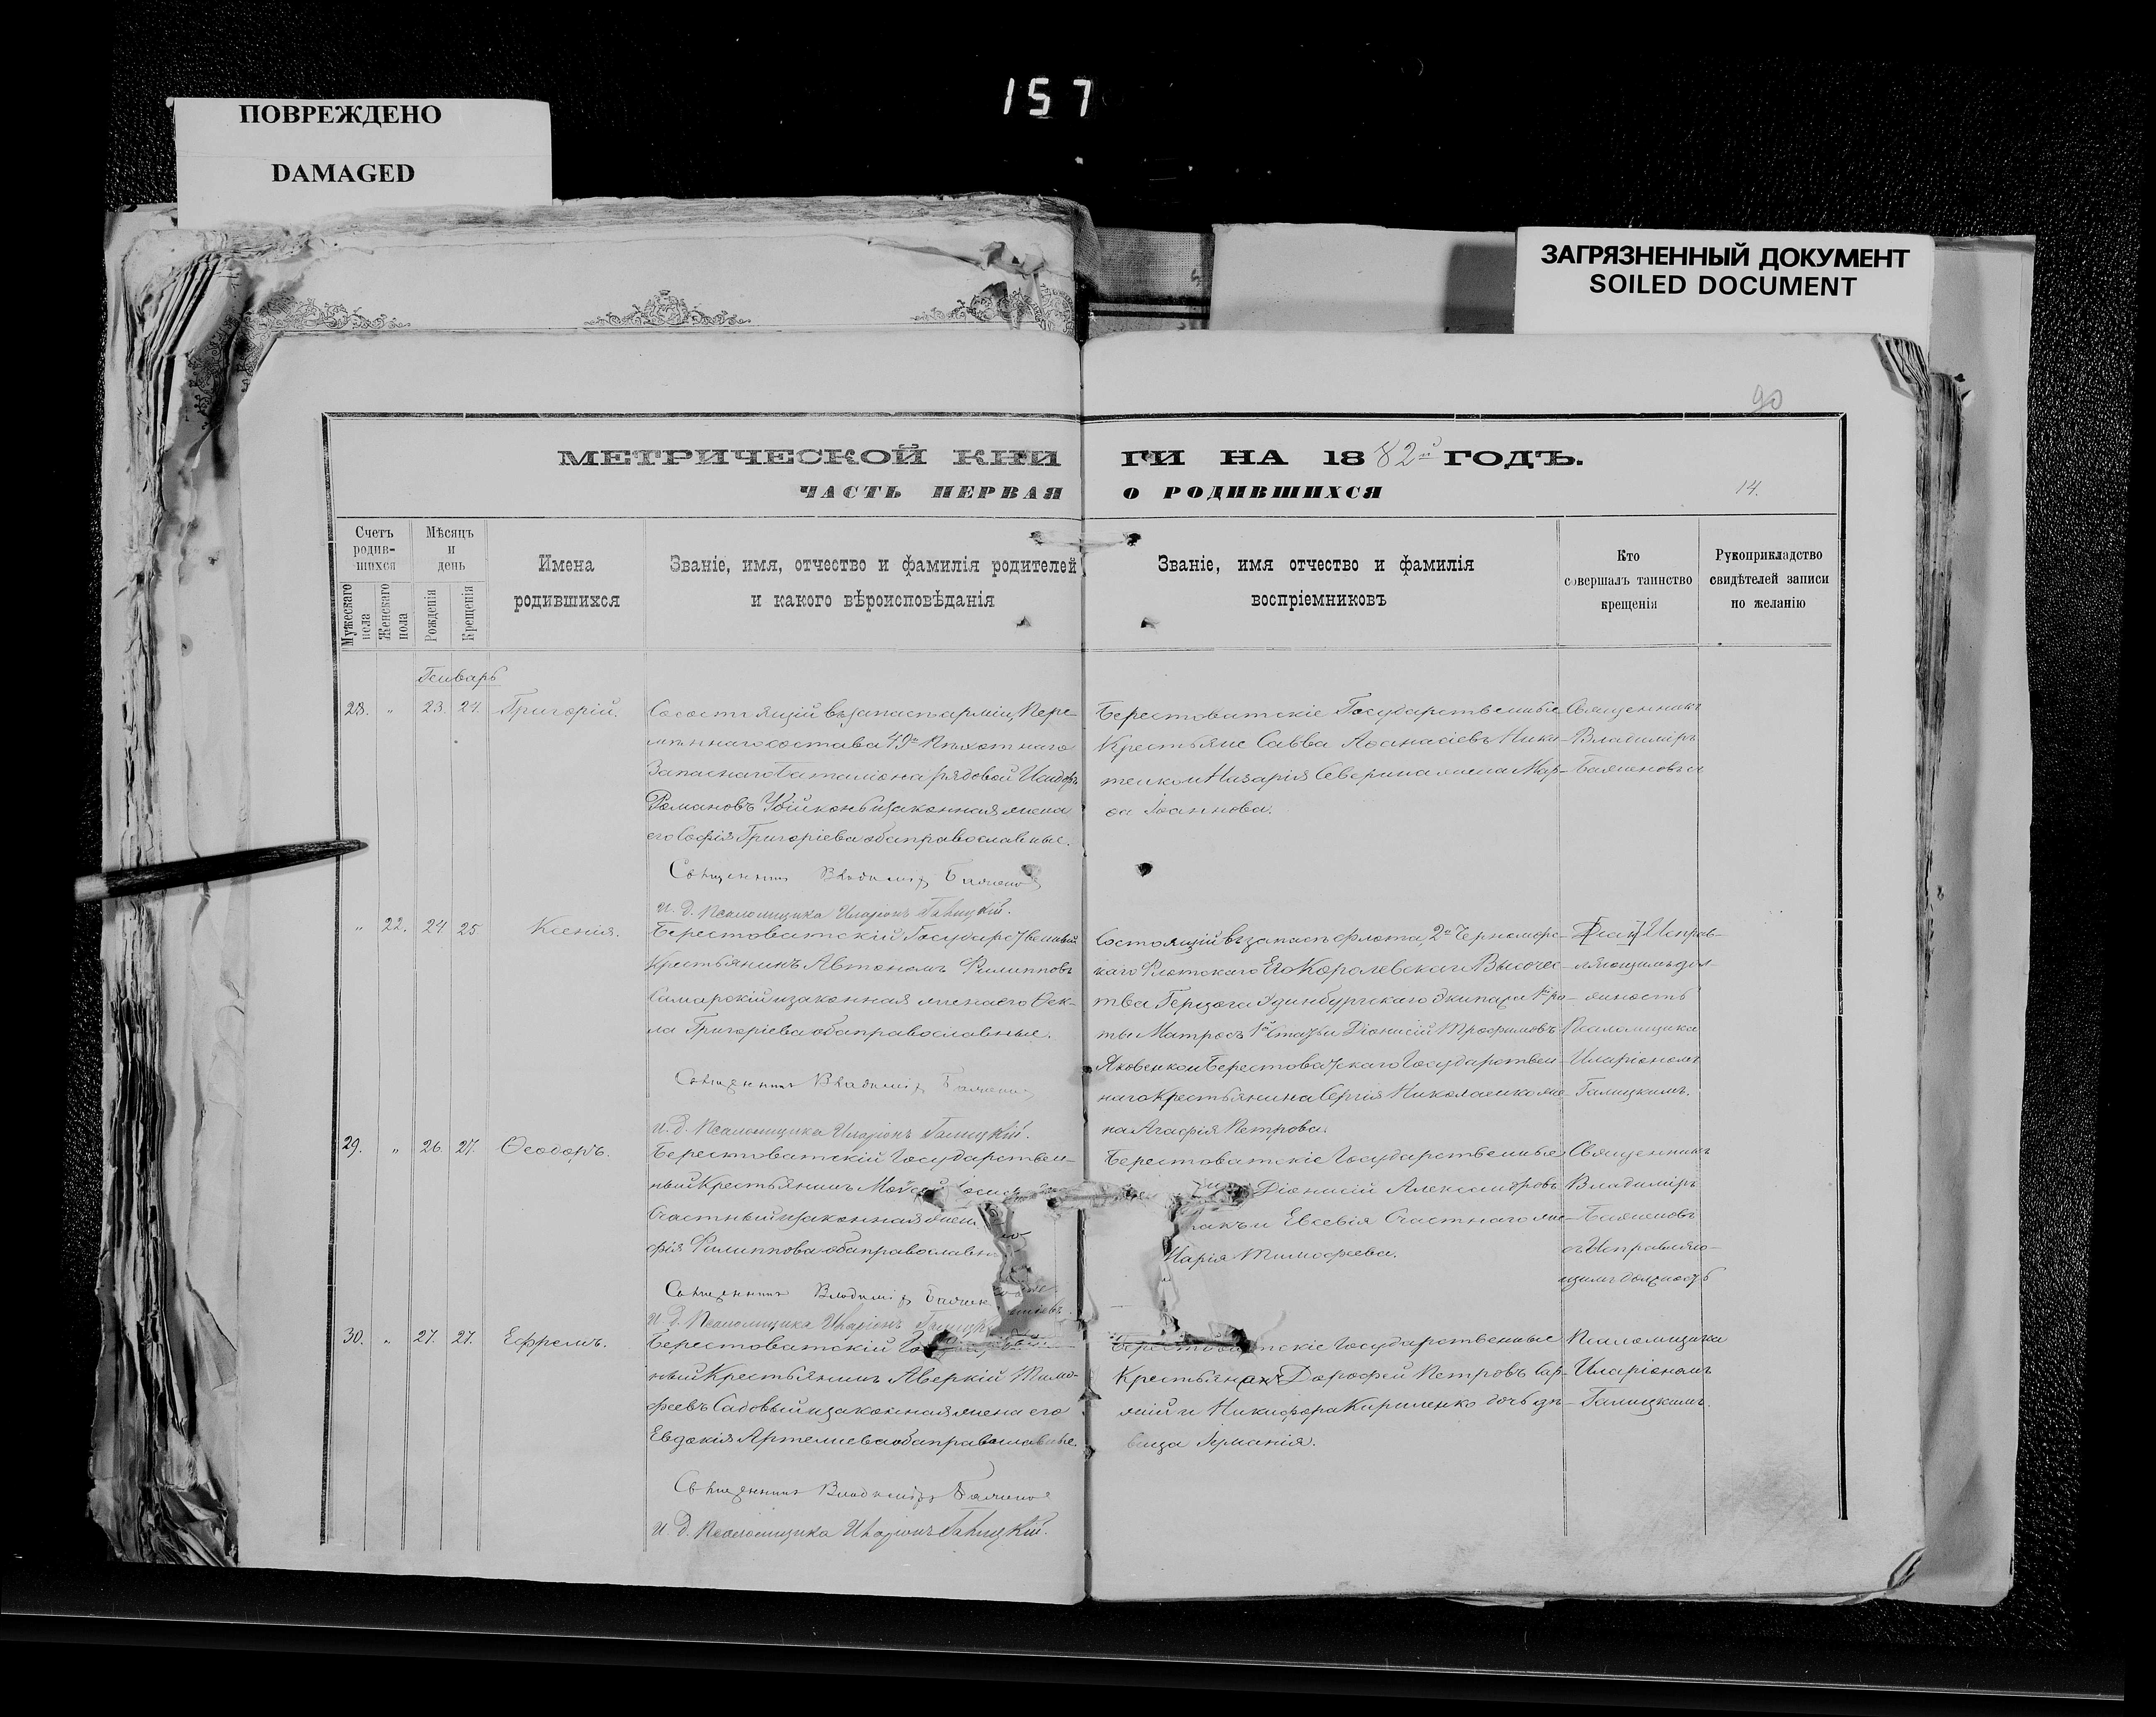 157
ПОВРЕЖДЕНО
DAMAGED
ЗАГРЯЗНЕННЫЙ ДОКУМЕНТ
SOILED DOCUMENT
90
МЕТРИЧЕСКОЙ КНИ ГИ НА 1882й ГОДЪ.
ЧАСТЬ ПЕРВАЯ О РОДИВШИХСЯ
14.
Счетъ
родив-
шихся
Мужескаго
пола
Женскаго
пола
Мѣсяцъ
и
день
Рожденія
Крещенія
Имена
родившихся
Званіе, имя, отчество и фамилія родителей
и какого вѣроисповѣданія
Званіе, имя отчество и фамилія
воспріемниковъ
Кто
совершалъ таинство
крещенія
Рукоприкладство
свидѣтелей записи
по желанію
Генварь
28. " 23. 24. Григорій.
Состоящій въ запасѣ арміи, Пере-
мѣннаго состава 49го Пѣхотнаго
Запаснаго баталіона рядовой Исидоръ
Романовъ Убійконь и законная жена
его Софія Григоріева оба православные.
Священникъ Владиміръ Баженовъ
И. д. Псаломщика Иларіонъ Галицкій.
Берестоватскіе Государственные
Крестьяне Савва Аѳанасіевъ Ники-
тенко и Назарія Северина жена Мар-
ѳа Іоаннова.
Священникъ
Владиміръ
Баженовъ
" 22. 24 25 Ксенія.
Берестоватскій Государственный
Крестьянинъ Автономъ Филипповъ
Самарскій и законная жена его Ѳек-
ла Григоріева оба православные.
Священникъ Владиміръ Баженовъ
И. д. Псаломщика Иларіонъ Галицкій.
Состоящій въ запасѣ флота, 2го Черноморс-
каго Флотскаго Его Королевскаго Высочес-
тва Герцога Эдинбургскаго Экипажа 1й ро-
ты Матросъ 1й Статьи Діонисій Трофимовъ
Яковенко и Берестоватскаго Государствен-
наго Крестьянина Сергія Николаенко же-
на Агафія Петрова.
Исправ-
ляющимъ дол-
жность
Псаломщика
Иларіономъ
Галицкимъ.
29. " 26. 27. Ѳеодоръ.
Берестоватскій Государствен-
ный Крестьянинъ Мойсей
Счастный и законная жен
фія Филиппова оба православн
Священникъ Владиміръ Бажен
И. д. Псаломщика Иларіонъ Галицк
Берестоватскіе Государственные
Діонисій Александровъ
и Евсевія Счастнаго же-
Марія Тимофеева.
Священникъ
Владиміръ
Баженовъ
съ Исправляю-
щимъ должность
30. " 27. 27. Ефремъ.
Берестоватскій
ный Крестьянинъ Аверкій Тимо-
феевъ Садовый и законная жена его
Евдокія Артемиева оба православные.
Священникъ Владиміръ Баженовъ
И. д. Псаломщика Иларіонъ Галицкій.
Берестоватскіе Государственные
Дорофей Петровъ Сар-
жій и Никифора Кириленко дочь дѣ-
вица Германія.
Псаломщика
Иларіономъ
Галицкимъ.